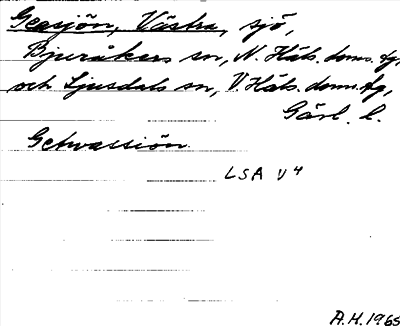 Geasjön, Västra, sjö,
Bjuråkers sn, N. Häls. doms. fg,
och Ljusdals sn, V. Häls. doms. fg,
Gävl. l.
Getwassiön
LSA V 4
A.H. 1965